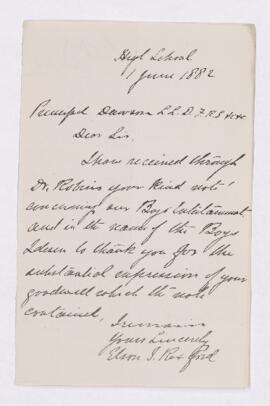 High School
1 June 1882
Principal Dawson L L. D. F. R. S &c &c
Dear Sir.
I have received through
Dr. Robins your kind note
concerning our Boys Entertainment
and in the name of the Boys
I desire to thank you for the
substantial expression of your
goodwill which the note
contained,
I remain
Yours Sincerely
Elson I. Rexford